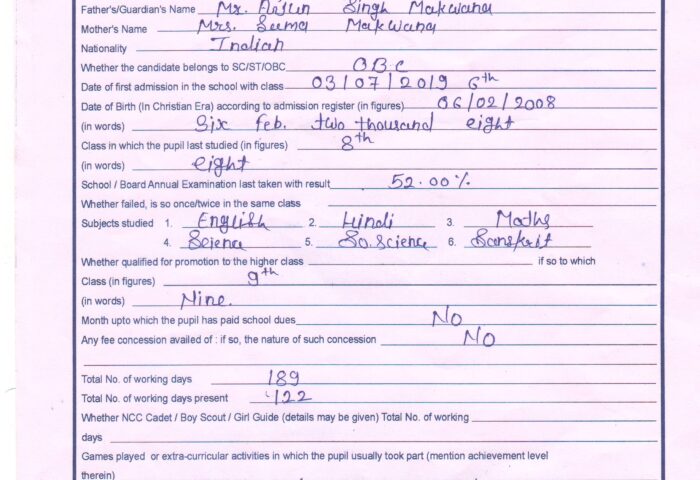 Father's/Guardian's Name Mr. Arjun Singh Makwana
Mother's Name Mrs. Seema Makwana
Nationality Indian
Whether the candidate belongs to SC/ST/OBC OBC
Date of first admission in the school with class 03/07/2019 6th
Date of Birth (In Christian Era) according to admission register (in figures) 06/02/2008
(in words) Six feb. two thousand eight
Class in which the pupil last studied (in figures) 8th
(in words) eight
School / Board Annual Examination last taken with result 52.00%
Whether failed, is so once/twice in the same class
Subjects studied 1. English 2. Hindi 3. Maths
4. Science 5. So.Science 6. Sanskrit
Whether qualified for promotion to the higher class if so to which
Class (in figures) 9th
(in words) Nine.
Month upto which the pupil has paid school dues No
Any fee concession availed of : if so, the nature of such concession No
Total No. of working days 189
Total No. of working days present 122
Whether NCC Cadet / Boy Scout / Girl Guide (details may be given) Total No. of working
days
Games played or extra-curricular activities in which the pupil usually took part (mention achievement level
therein)